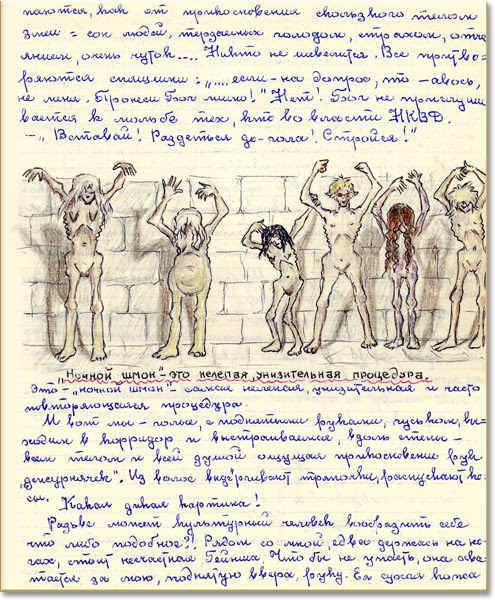 паются, как от прикосновения скользкого телом
змеи = сон людей, терзаемых голодом, страхом, отча
янием, очень чуток.... Никто не шевелится. Все притво-
ряются спящими: „....если - на допрос, то - авось,
не меня. Пронеси Бог мимо!" Нет! Бог не прислуши
вается к мольбе тех, кто во власти НКВД.
-„ Вставай! Раздеться до-гола! Стройся!"
„Ночной шмон" - это нелепая, унизительная процедура.
Это - „ночной шмон" - самая нелепая, унизительная и часто
повторяющаяся процедура.
И вот мы - голые, с поднятыми руками, гуськом, вы-
ходим в корридор и выстраиваемся, вдоль стены -
всем телом и всей душой ощущая прикосновение рук
„дежурнячек". Из волос выдёргивают тряпочки, распускают ко-
сы. Какая дикая картина!
Разьве может культурный человек вообразить себе
что либо подобное?! Рядом со мной, едва держась на но-
гах, стоит несчастная Гейниша. Что бы не упасть, она хва-
тается за мою, поднятую вверх, руку. Её сухая кожа